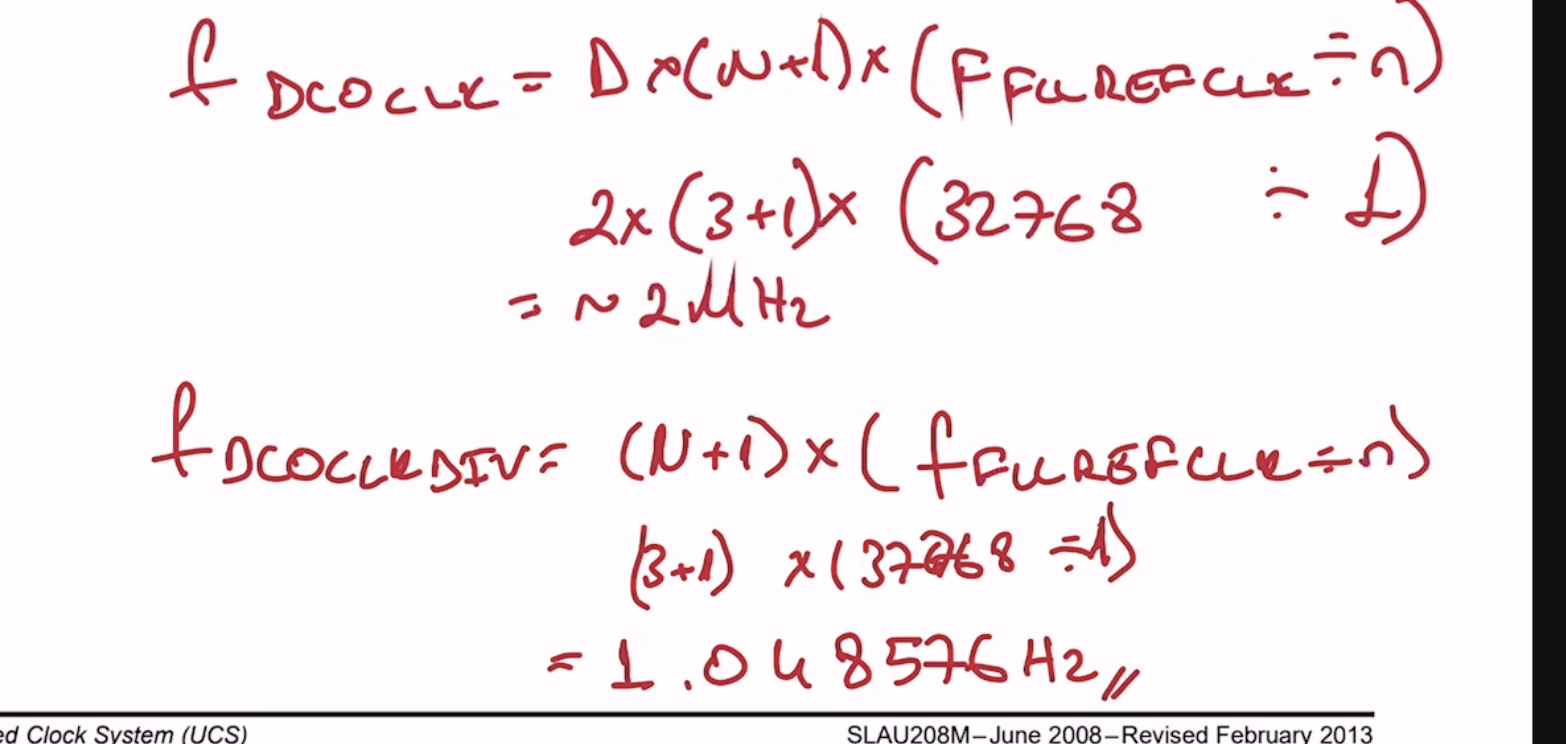 f DCOCLK = D x (N+1) x (F FLLREFCLK ÷ n)
2 x (3+1) x (32768 ÷ 1)
= ~ 2 MHz
f DCOCLKDIV = (N+1) x (f FLLREFCLK ÷ n)
(3+1) x (37768 ÷ 1)
= 1.048576 Hz //
ed Clock System (UCS) SLAU208M–June 2008–Revised February 2013